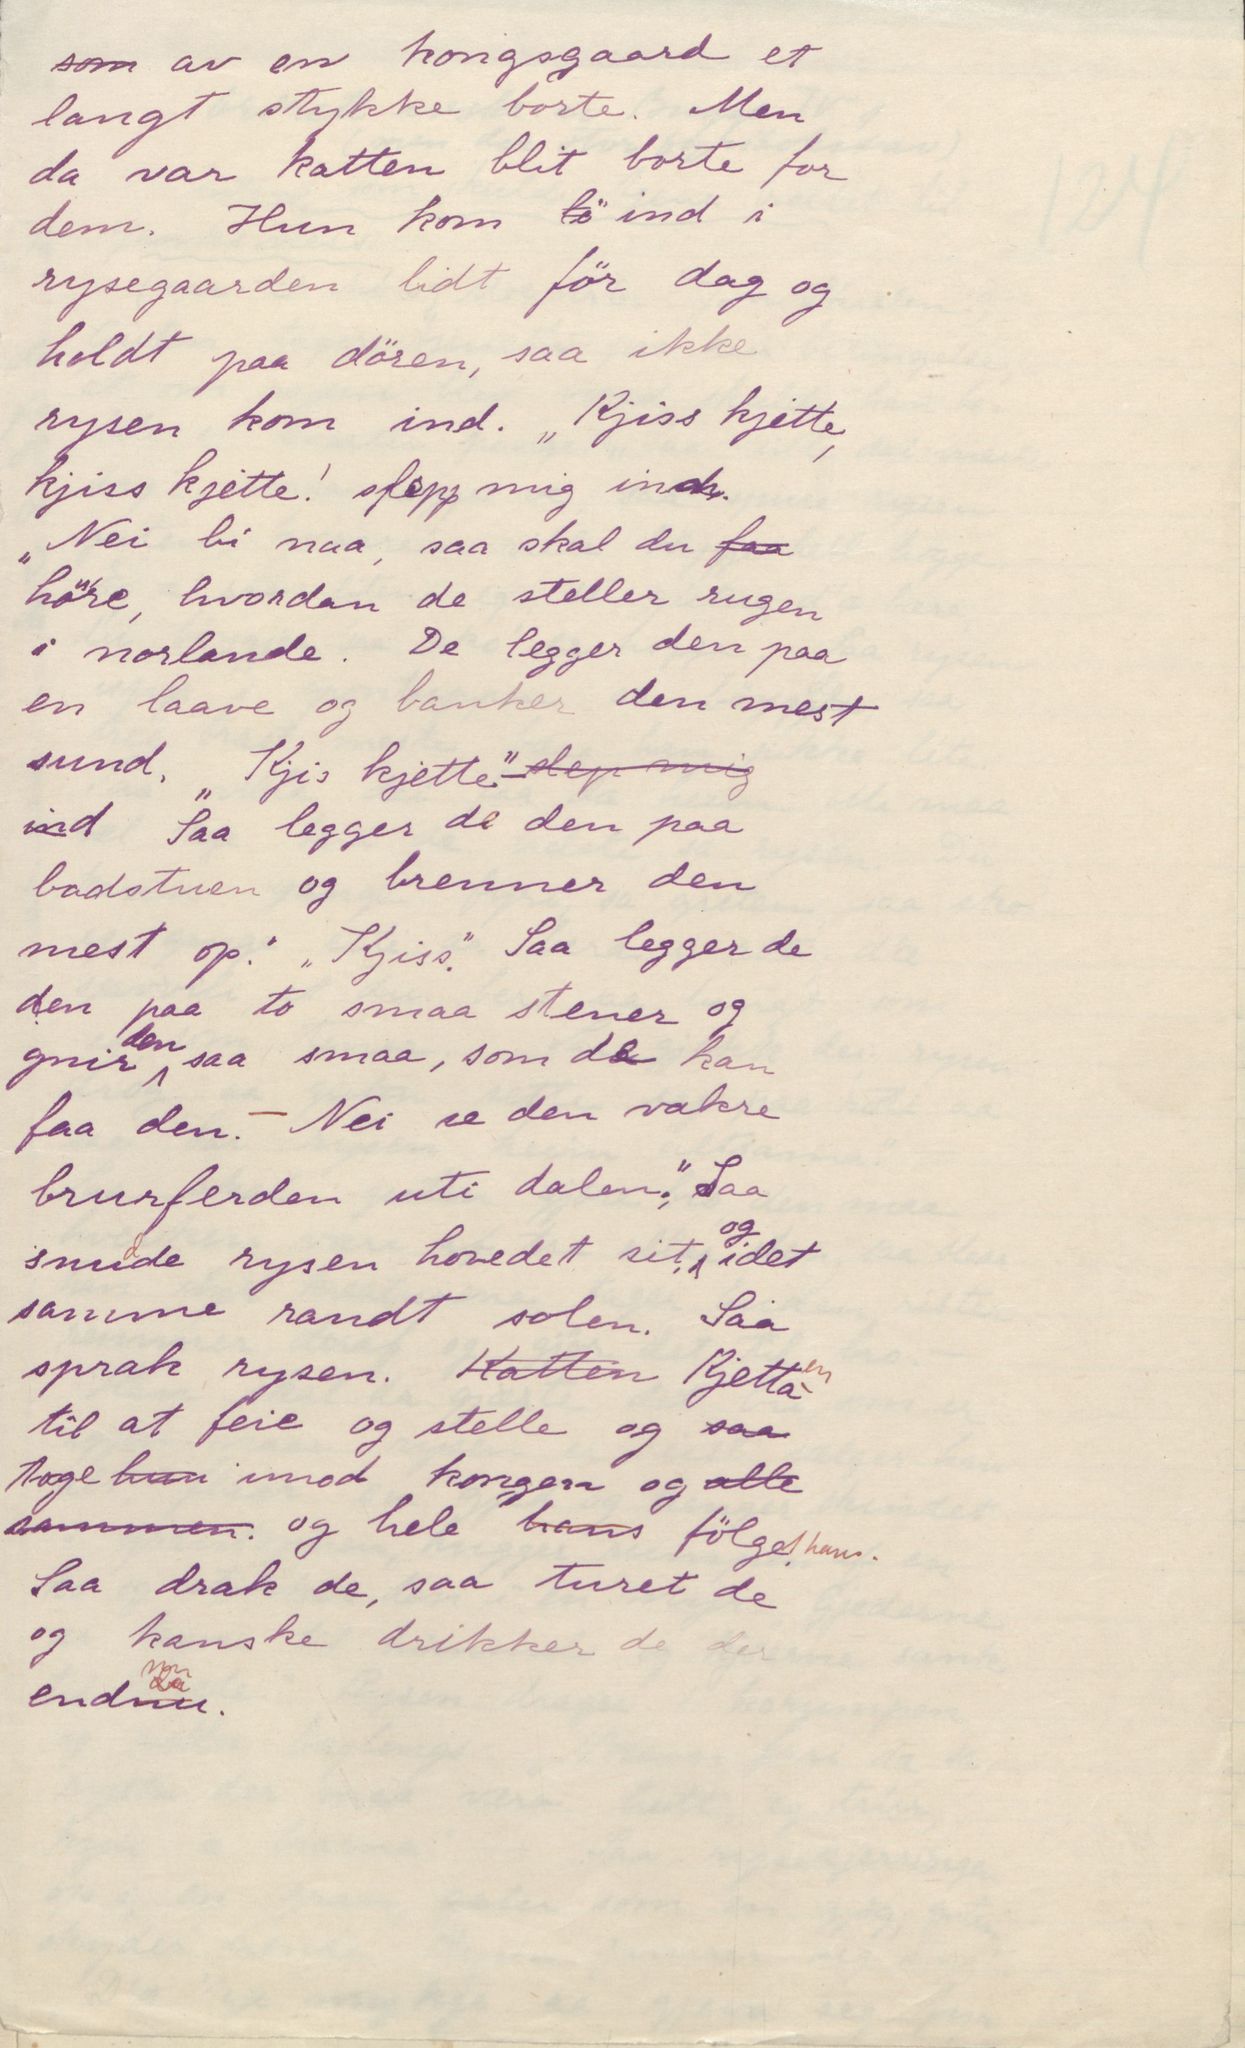 som av en kongsgaard et
langt stykke borte. Men
da var katten blit borte for
dem. Hun kom ind i
rysegaarden lidt för dag og
holdt paa dören, saa ikke
rysen kom ind. „Kjiss kjette,
kjiss kjette! slepp mig ind.
„Nei bi naa, saa skal du faa
höre, hvordan de steller rugen
i norlande. De legger den paa
en laave og banker den mest
sund. „Kjis kjette" slep mig
ind „Saa legger de den paa
badstuen og brenner den
mest op." „Kjiss". Saa legger de
den paa to smaa stener og
gnir den saa smaa, som de kan
faa den. – Nei se den vakre
brurferden uti dalen." Saa
snudde rysen hovedet sit, og idet
samme randt solen. Saa
sprak rysen. Katten Kjetta en
til at feie og stelle og saa
toge hun imod kongen og alle
sammen. og hele hans fölget hans.
Saa drak de, saa turet de
og kanske drikker de der
endnu.